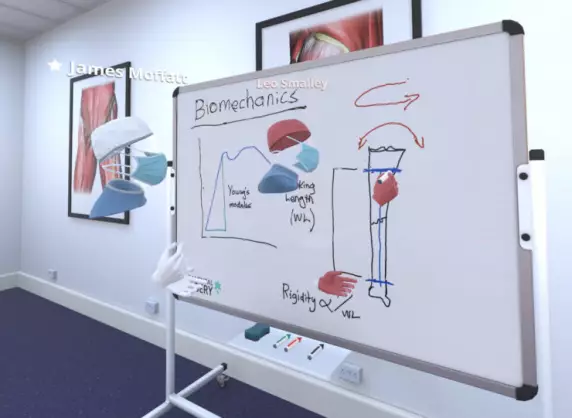 James Moffatt
Leo Smalley
Biomechanics
Young's
modulus
Length
(WL)
Rigidity ∝
WL